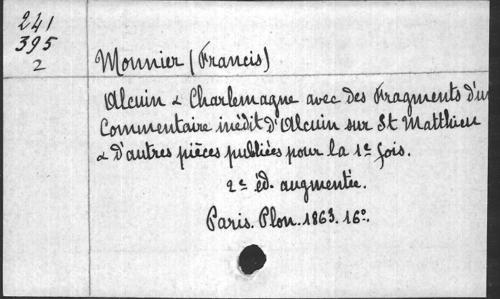 241
395
2
Monnier (Francis)
Alcuin & Charlemagne avec des Fragments d'un
Commentaire inédit d'Alcuin sur St Matthieu
& d'autres pièces publiées pour la 1e fois.
2e éd. augmentée.
Paris. Plon. 1863. 16°.